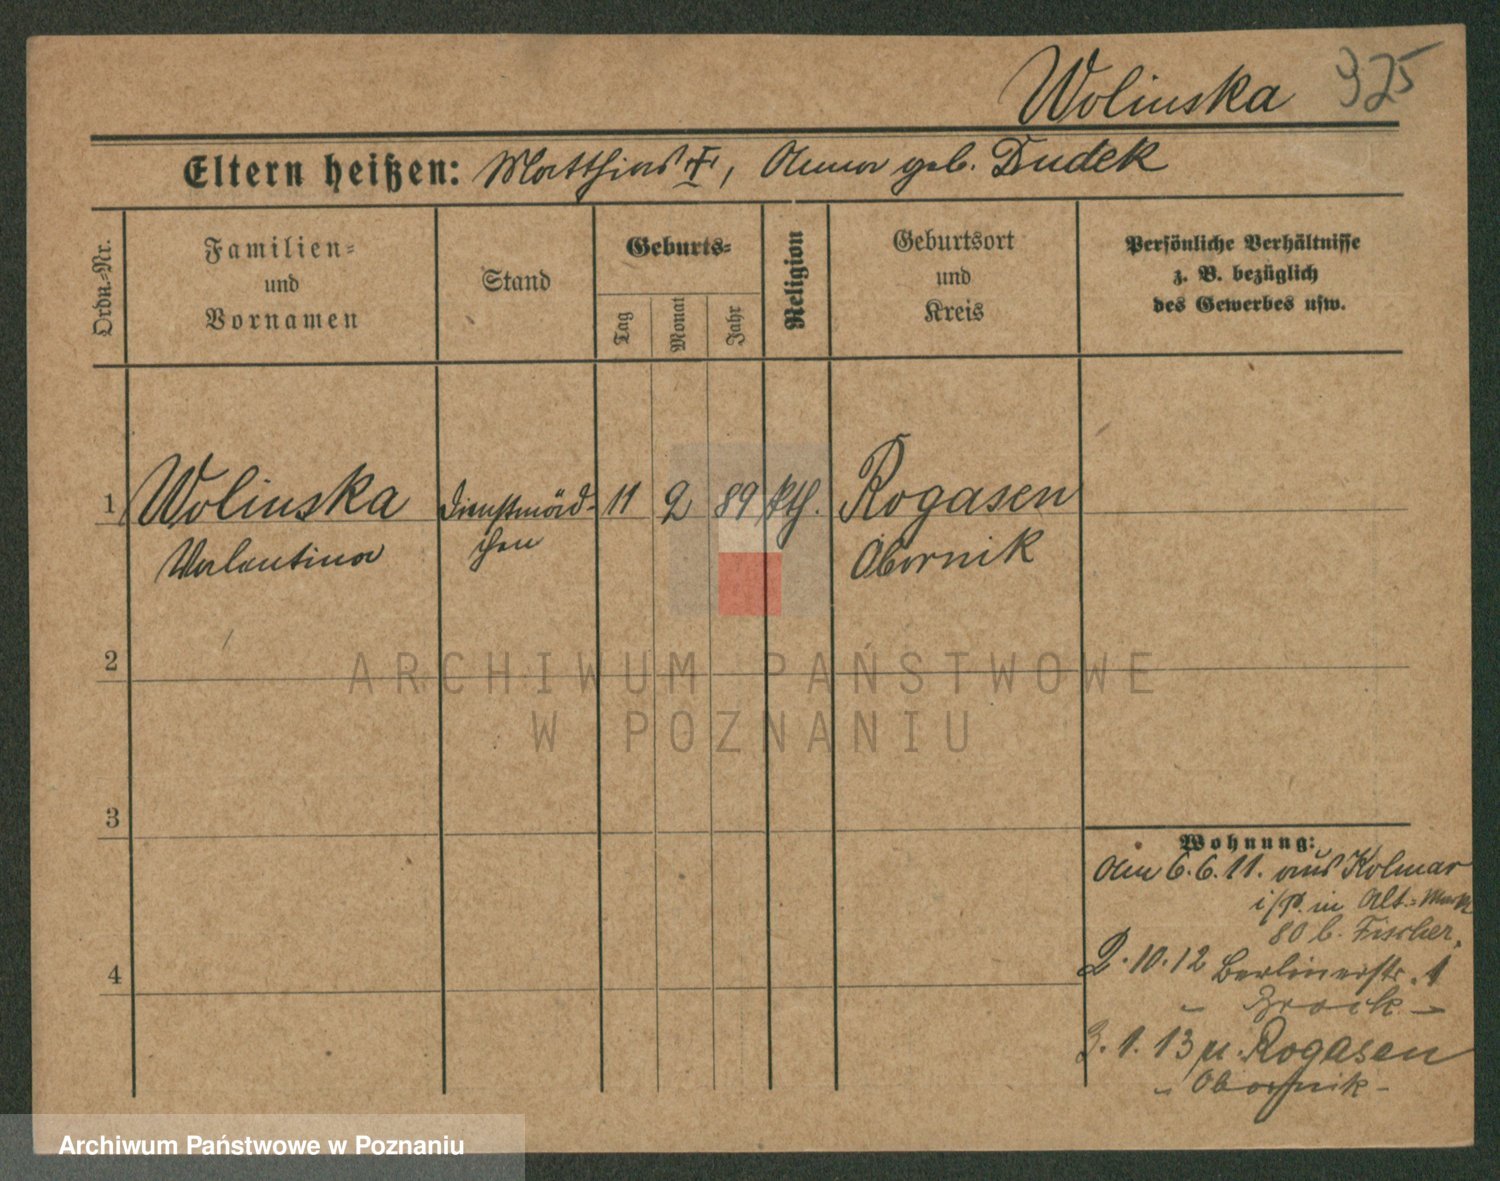 Wolinska 325
Eltern heißen: Matthias †, Anna geb. Dudek
Ordn.-Nr.
Familien-
und
Vornamen
Stand
Geburts-
Tag
Monat
Jahr
Religion
Geburtsort
und
Kreis
Persönliche Verhältnisse
z. B. bezüglich
des Gewerbes usw.
1 Wolinska Dienstmäd- 11 2 89 kth. Rogasen
Valentina chen Obornik
2
ARCHIWUM PAŃSTWOWE
W POZNANIU
3
Wohnung:
Am 6.6.11. aus Kolmar
i/P. in Alt.-Markt
80 b. Fischer.
2.10.12 Berlinerstr. 1
- Brock -
4
3.1.13 n. Rogasen
- Obornik -
Archiwum Państwowe w Poznaniu